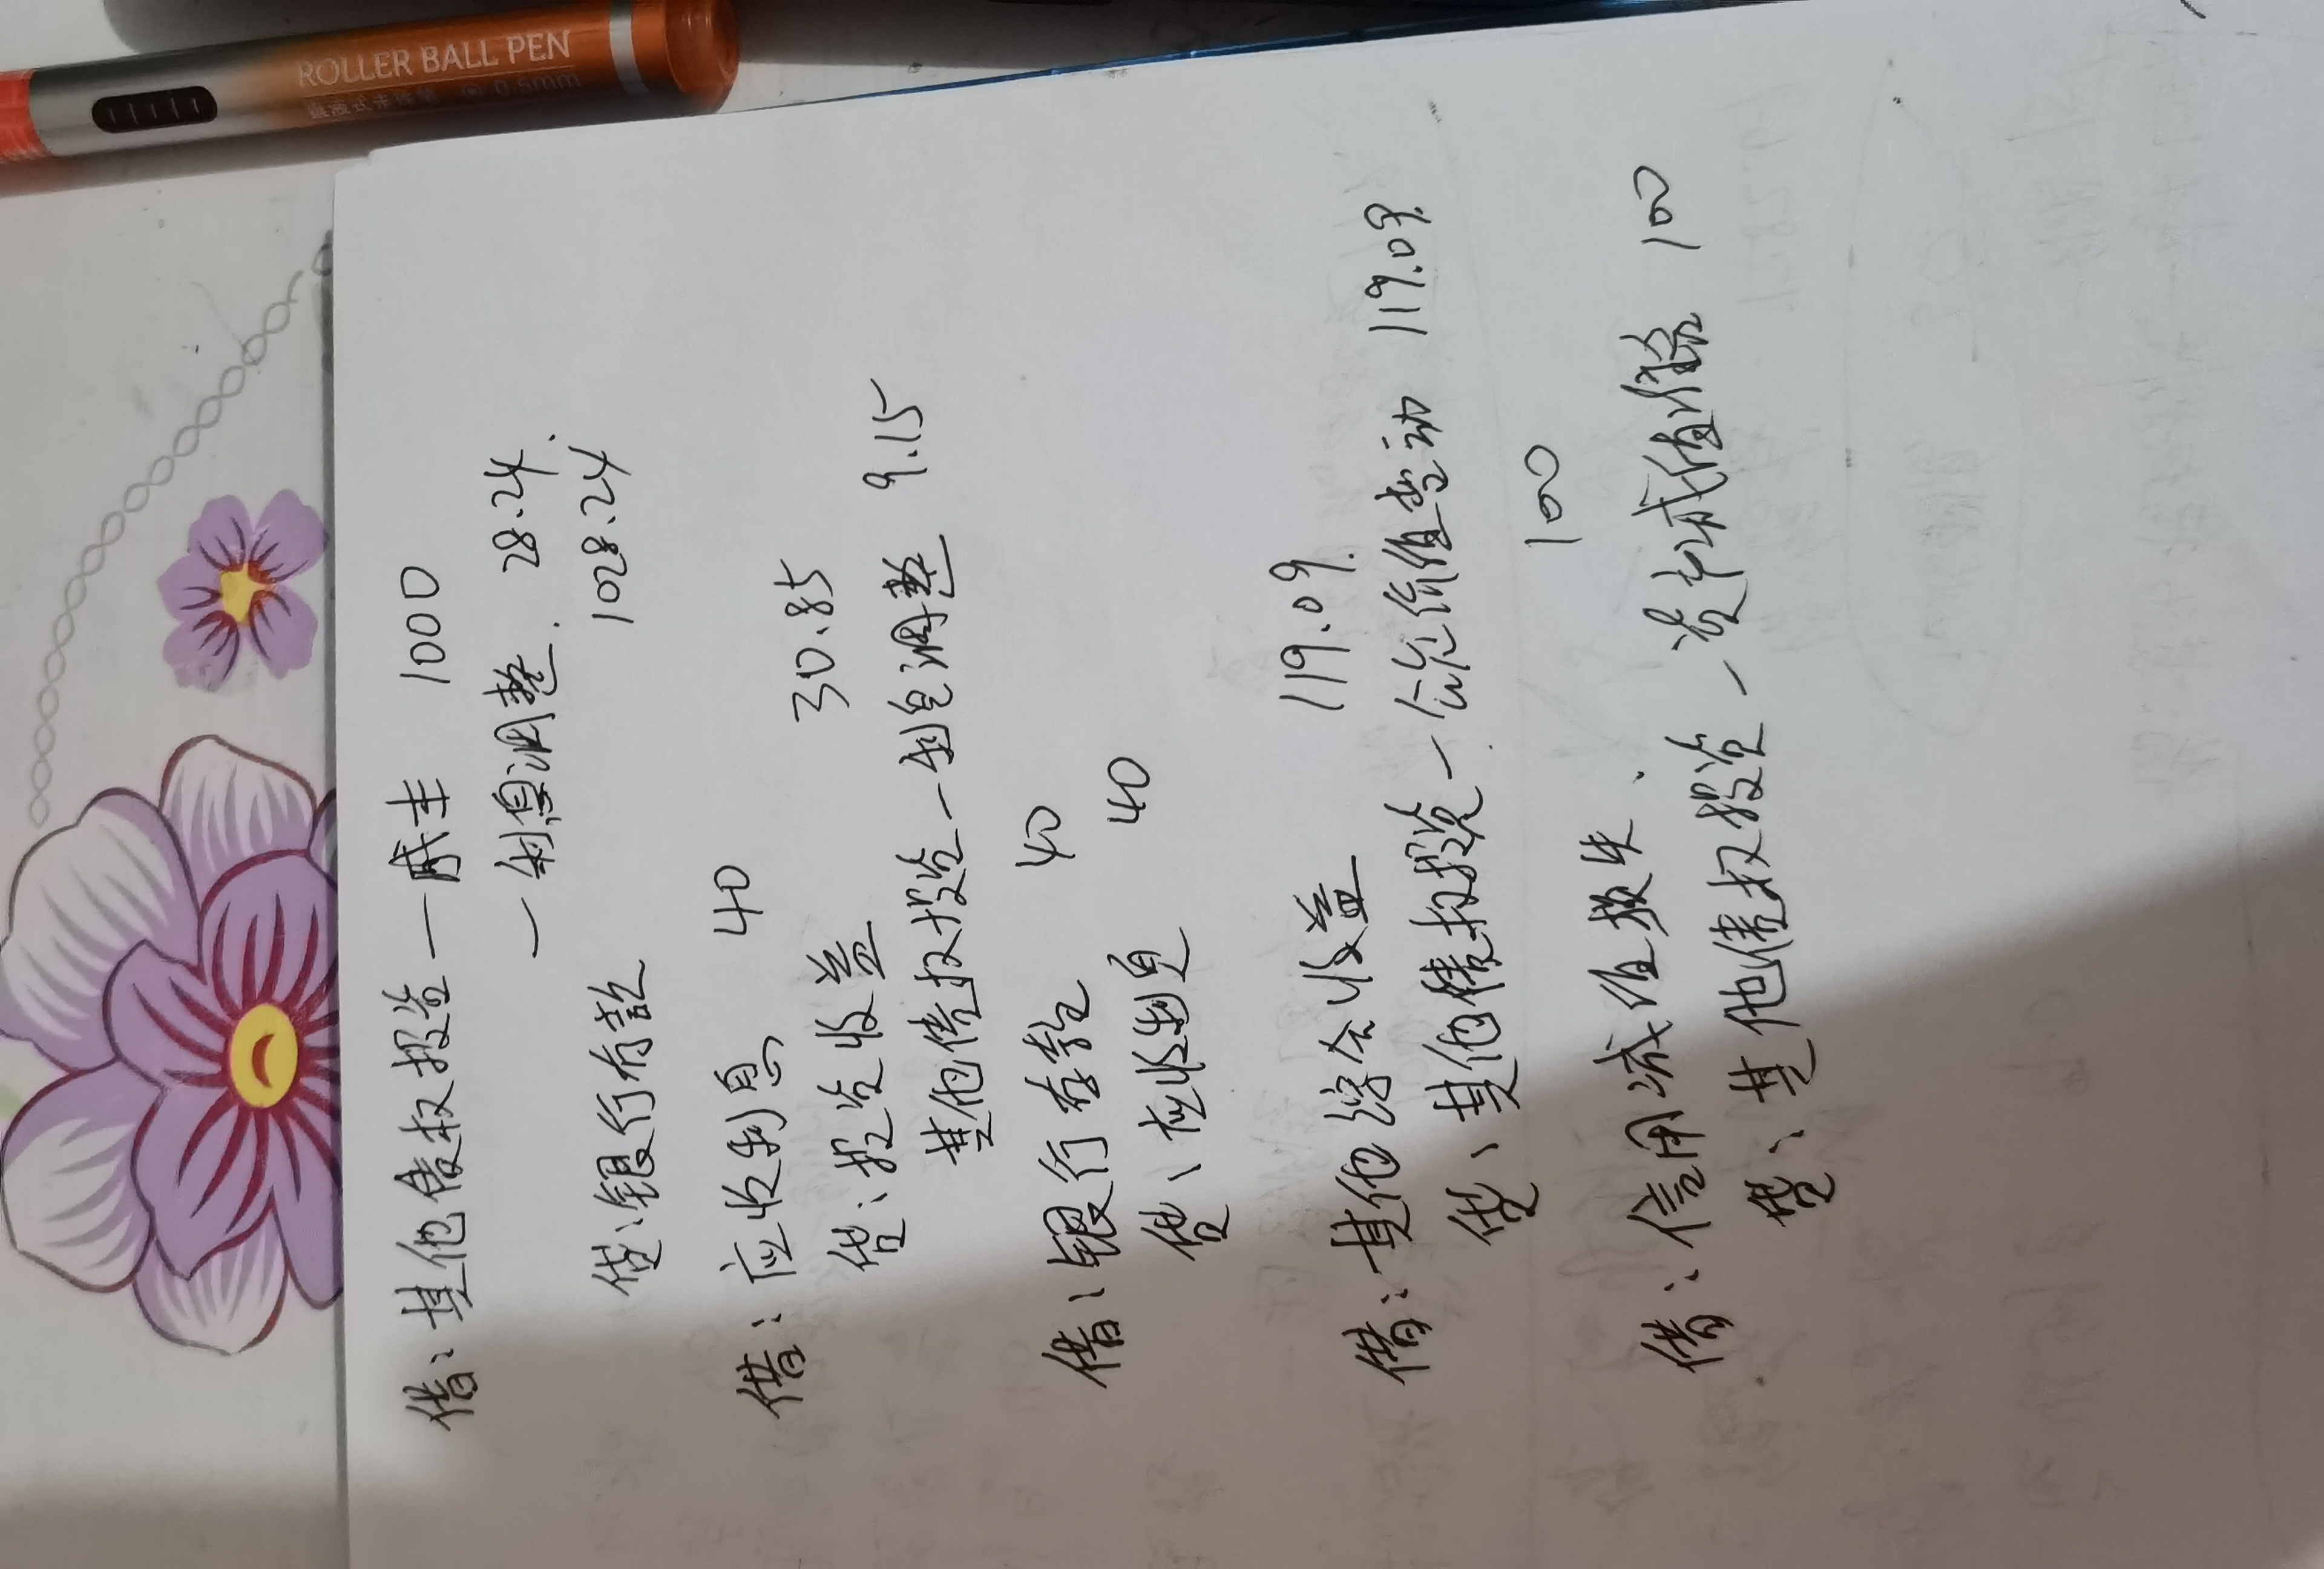 ROLLER BALL PEN
直液式走珠笔 0.5mm
借：其他债权投资—成本 1000
—利息调整 28.24
贷：银行存款 1028.24
借：应收利息 40
贷：投资收益 30.85
其他债权投资—利息调整 9.15
借：银行存款 40
贷：应收利息 40
借：其他综合收益 119.09
贷：其他债权投资—公允价值变动 119.09
借：信用减值损失 100
贷：其他债权投资—资产减值准备 100